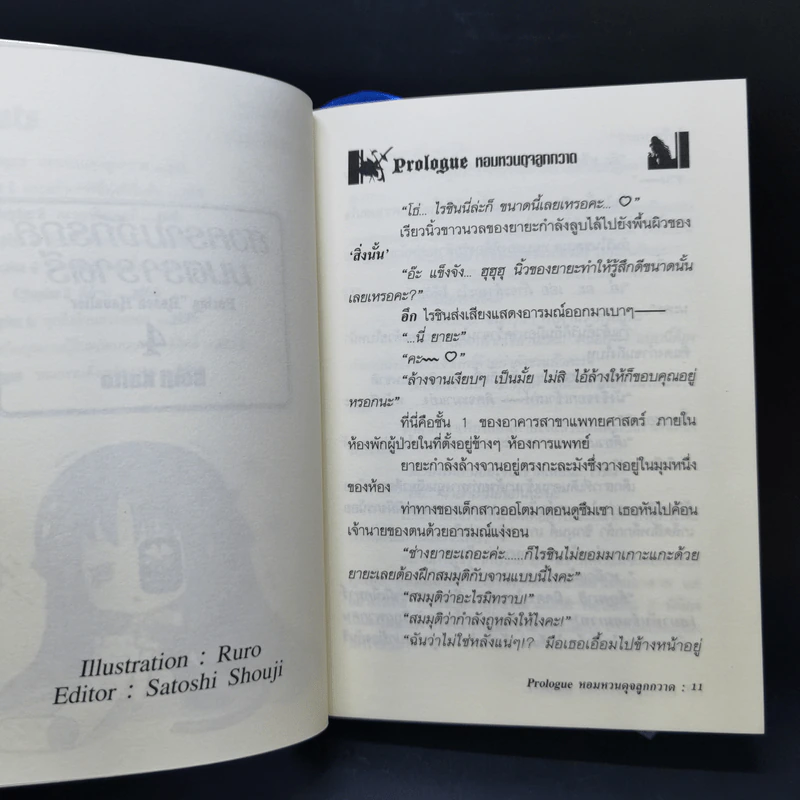 Illustration : Ruro
Editor : Satoshi Shouji
Prologue หอมหวนดุจลูกกวาด
“โธ่... ไรชินนี่ล่ะก็ ขนาดนี้เลยเหรอคะ... ♡”
เรียวนิ้วขาวนวลของยายะกำลังลูบไล้ไปยังพื้นผิวของ
‘สิ่งนั้น’
“อ๊ะ แข็งจัง... ฮุฮุฮุ นิ้วของยายะทำให้รู้สึกดีขนาดนั้น
เลยเหรอคะ?”
อึก ไรชินส่งเสียงแสดงอารมณ์ออกมาเบาๆ——
“...นี่ ยายะ”
“คะ~~ ♡”
“ล้างจานเงียบๆ เป็นมั้ย ไม่สิ ไอ้ล้างให้ก็ขอบคุณอยู่
หรอกนะ”
ที่นี่คือชั้น 1 ของอาคารสาขาแพทยศาสตร์ ภายใน
ห้องพักผู้ป่วยในที่ตั้งอยู่ข้างๆ ห้องการแพทย์
ยายะกำลังล้างจานอยู่ตรงกะละมังซึ่งวางอยู่ในมุมหนึ่ง
ของห้อง
ท่าทางของเด็กสาวออโตมาตอนดูซึมเซา เธอหันไปค้อน
เจ้านายของตนด้วยอารมณ์แง่งอน
“ช่างยายะเถอะค่ะ......ก็ไรชินไม่ยอมมาเกาะแกะด้วย
ยายะเลยต้องฝึกสมมุติกับจานแบบนี้ไงคะ”
“สมมุติว่าอะไรมิทราบ!”
“สมมุติว่ากำลังถูหลังให้ไงคะ!”
“ฉันว่าไม่ใช่หลังแน่ๆ!? มือเธอเอื้อมไปข้างหน้าอยู่
Prologue หอมหวนดุจลูกกวาด : 11